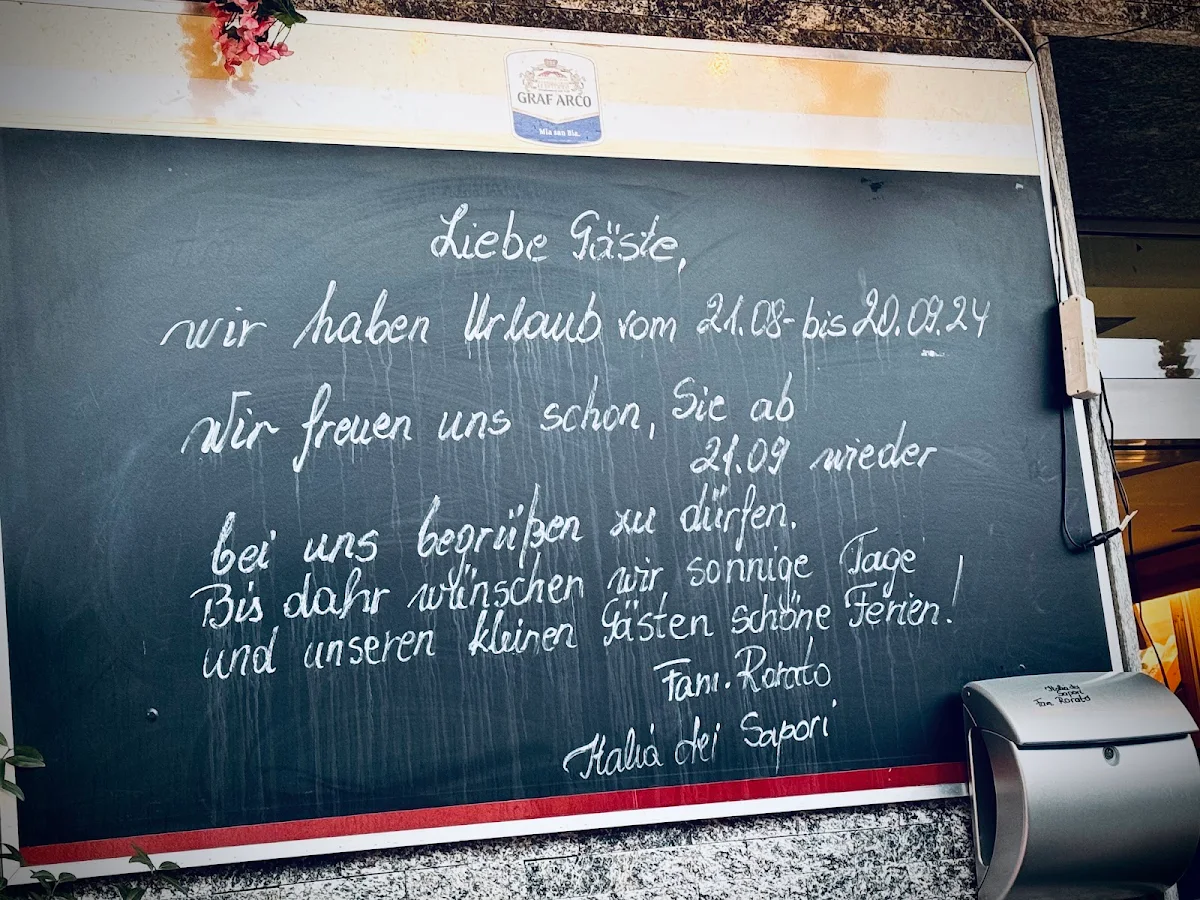 GRAF ARCO
Mia san Bia.
Liebe Gäste,
wir haben Urlaub vom 21.08- bis 20.09.24
Wir freuen uns schon, Sie ab
21.09 wieder
bei uns begrüßen zu dürfen.
Bis dahr wünschen wir sonnige Tage
und unseren kleinen Gästen schöne Ferien.!
Fam. Rorato
Italia dei Sapori
Italia dei
Sapori
Fam. Rorato